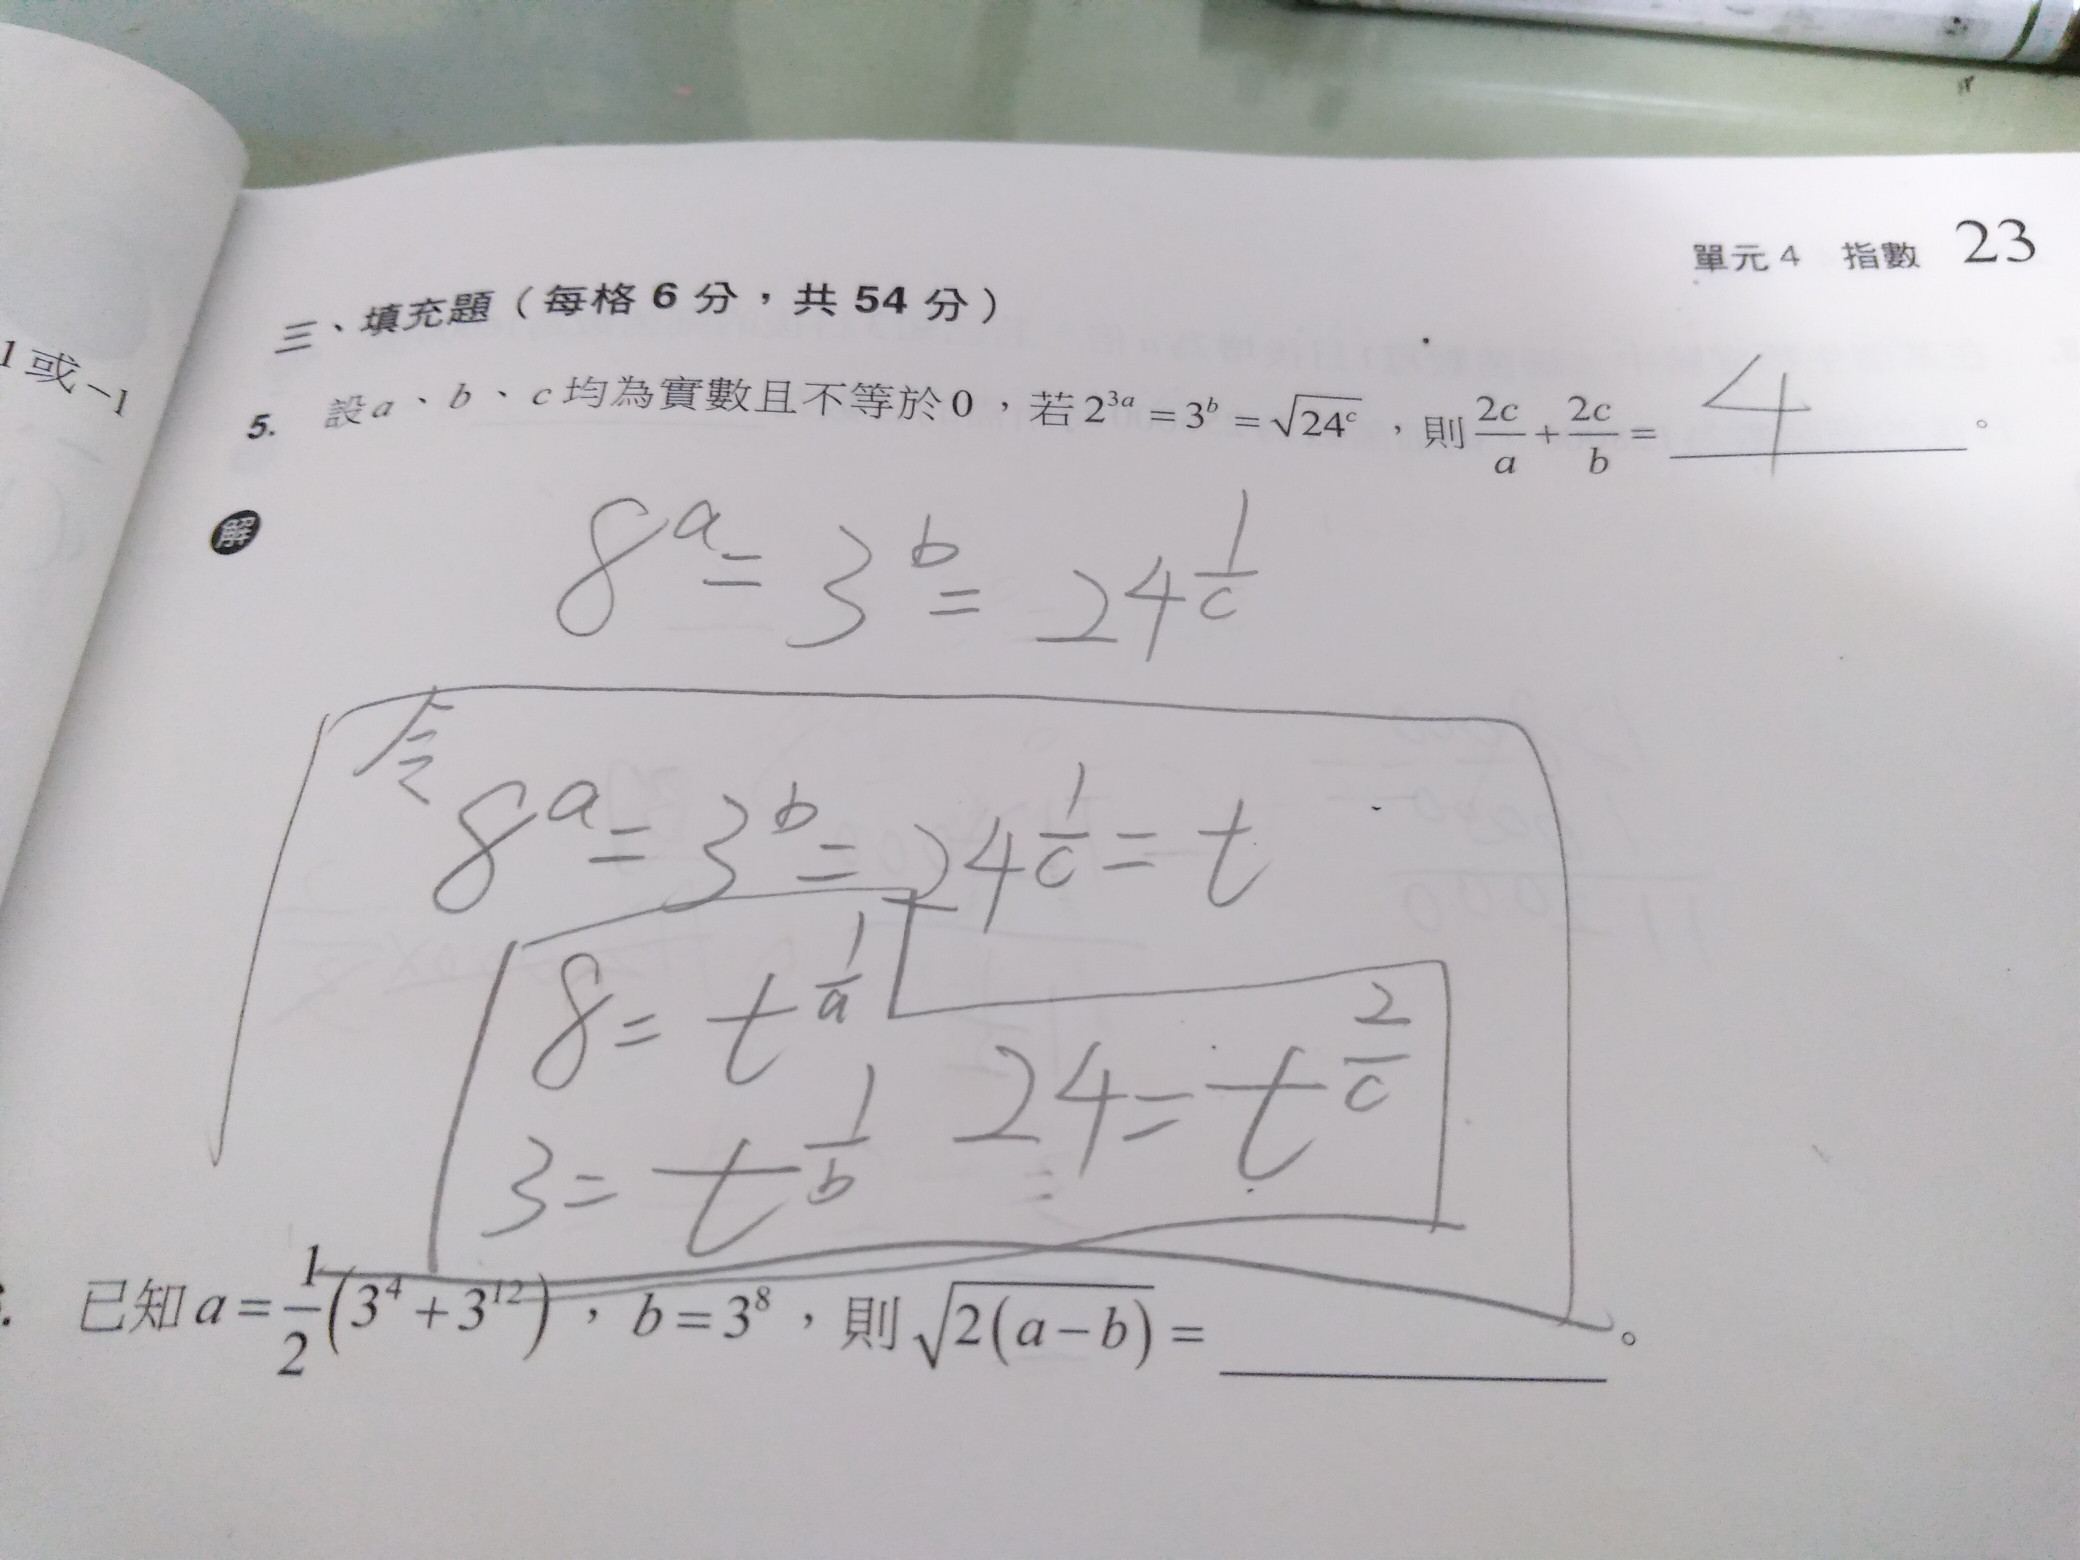 單元4 指數 23
三、填充題（每格 6 分，共 54 分）
1或-1
5. 設a、b、c均為實數且不等於0，若2^{3a}=3^b=√(24^c)，則 2c/a + 2c/b = 4。
解
8^a = 3^b = 24^{1/c}
令
8^a = 3^b = 24^{1/c} = t
8 = t^{1/a}
3 = t^{1/b} 24 = t^{2/c}
. 已知a=1/2(3^4+3^{12})，b=3^8，則√(2(a-b))=。